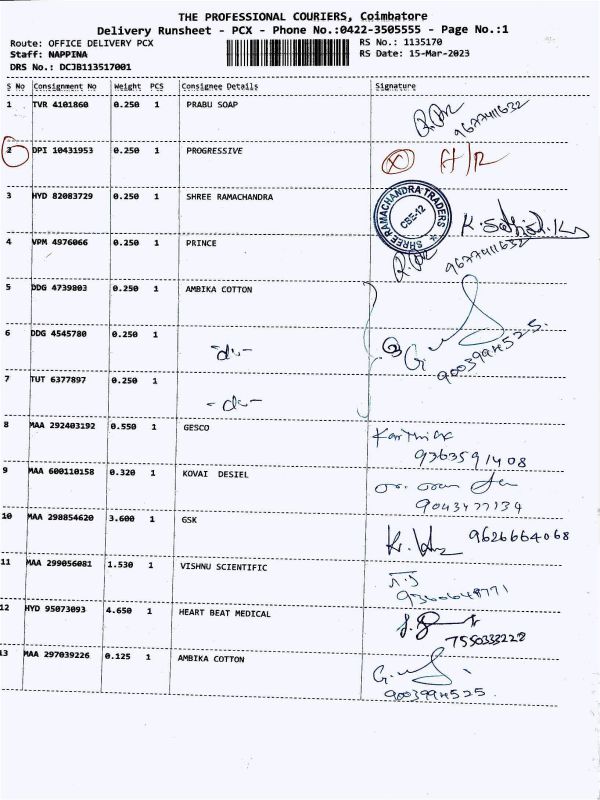 THE PROFESSIONAL COURIERS, Coimbatore
Delivery Runsheet - PCX - Phone No.:0422-3505555 - Page No.:1
Route: OFFICE DELIVERY PCX RS No.: 1135170
Staff: NAPPINA RS Date: 15-Mar-2023
DRS No.: DCJB113517001
S No Consignment No Weight PCS Consignee Details Signature
1 TVR 4101860 0.250 1 PRABU SOAP
9677411632
2 DPI 10431953 0.250 1 PROGRESSIVE
3 HYD 82083729 0.250 1 SHREE RAMACHANDRA
SHREE RAMACHANDRA TRADERS
CBE-12
4 VPM 4976066 0.250 1 PRINCE
9677411632
5 DDG 4739803 0.250 1 AMBIKA COTTON
6 DDG 4545780 0.250 1 -do-
9003994525.
7 TUT 6377897 0.250 1 -do-
8 MAA 292403192 0.550 1 GESCO Karthick
9363591408
9 MAA 600110158 0.320 1 KOVAI DESIEL
9043477134
10 MAA 298854620 3.600 1 GSK 9626664068
11 MAA 299056081 1.530 1 VISHNU SCIENTIFIC
9360648771
12 HYD 95073093 4.650 1 HEART BEAT MEDICAL
7550333228
13 MAA 297039226 0.125 1 AMBIKA COTTON
9003994525.